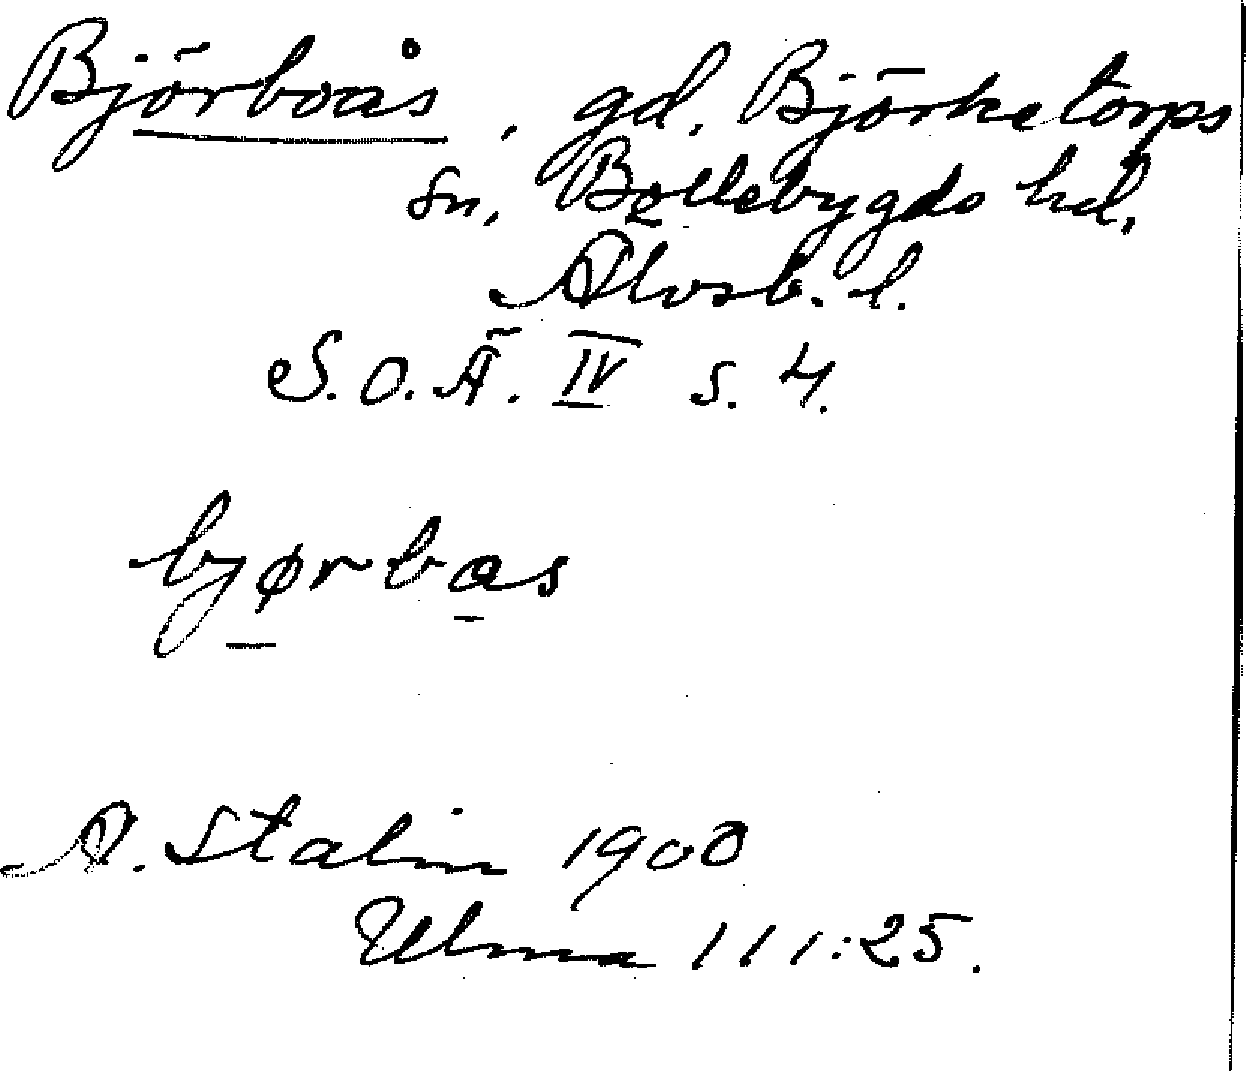 Björboås, gd. Björketorps
sn, Bollebygds hd.
Älvsb. l.
S. O. Ä. IV s. 4.
bjørbas
A. Stalin 1900
Ulma 111:25.